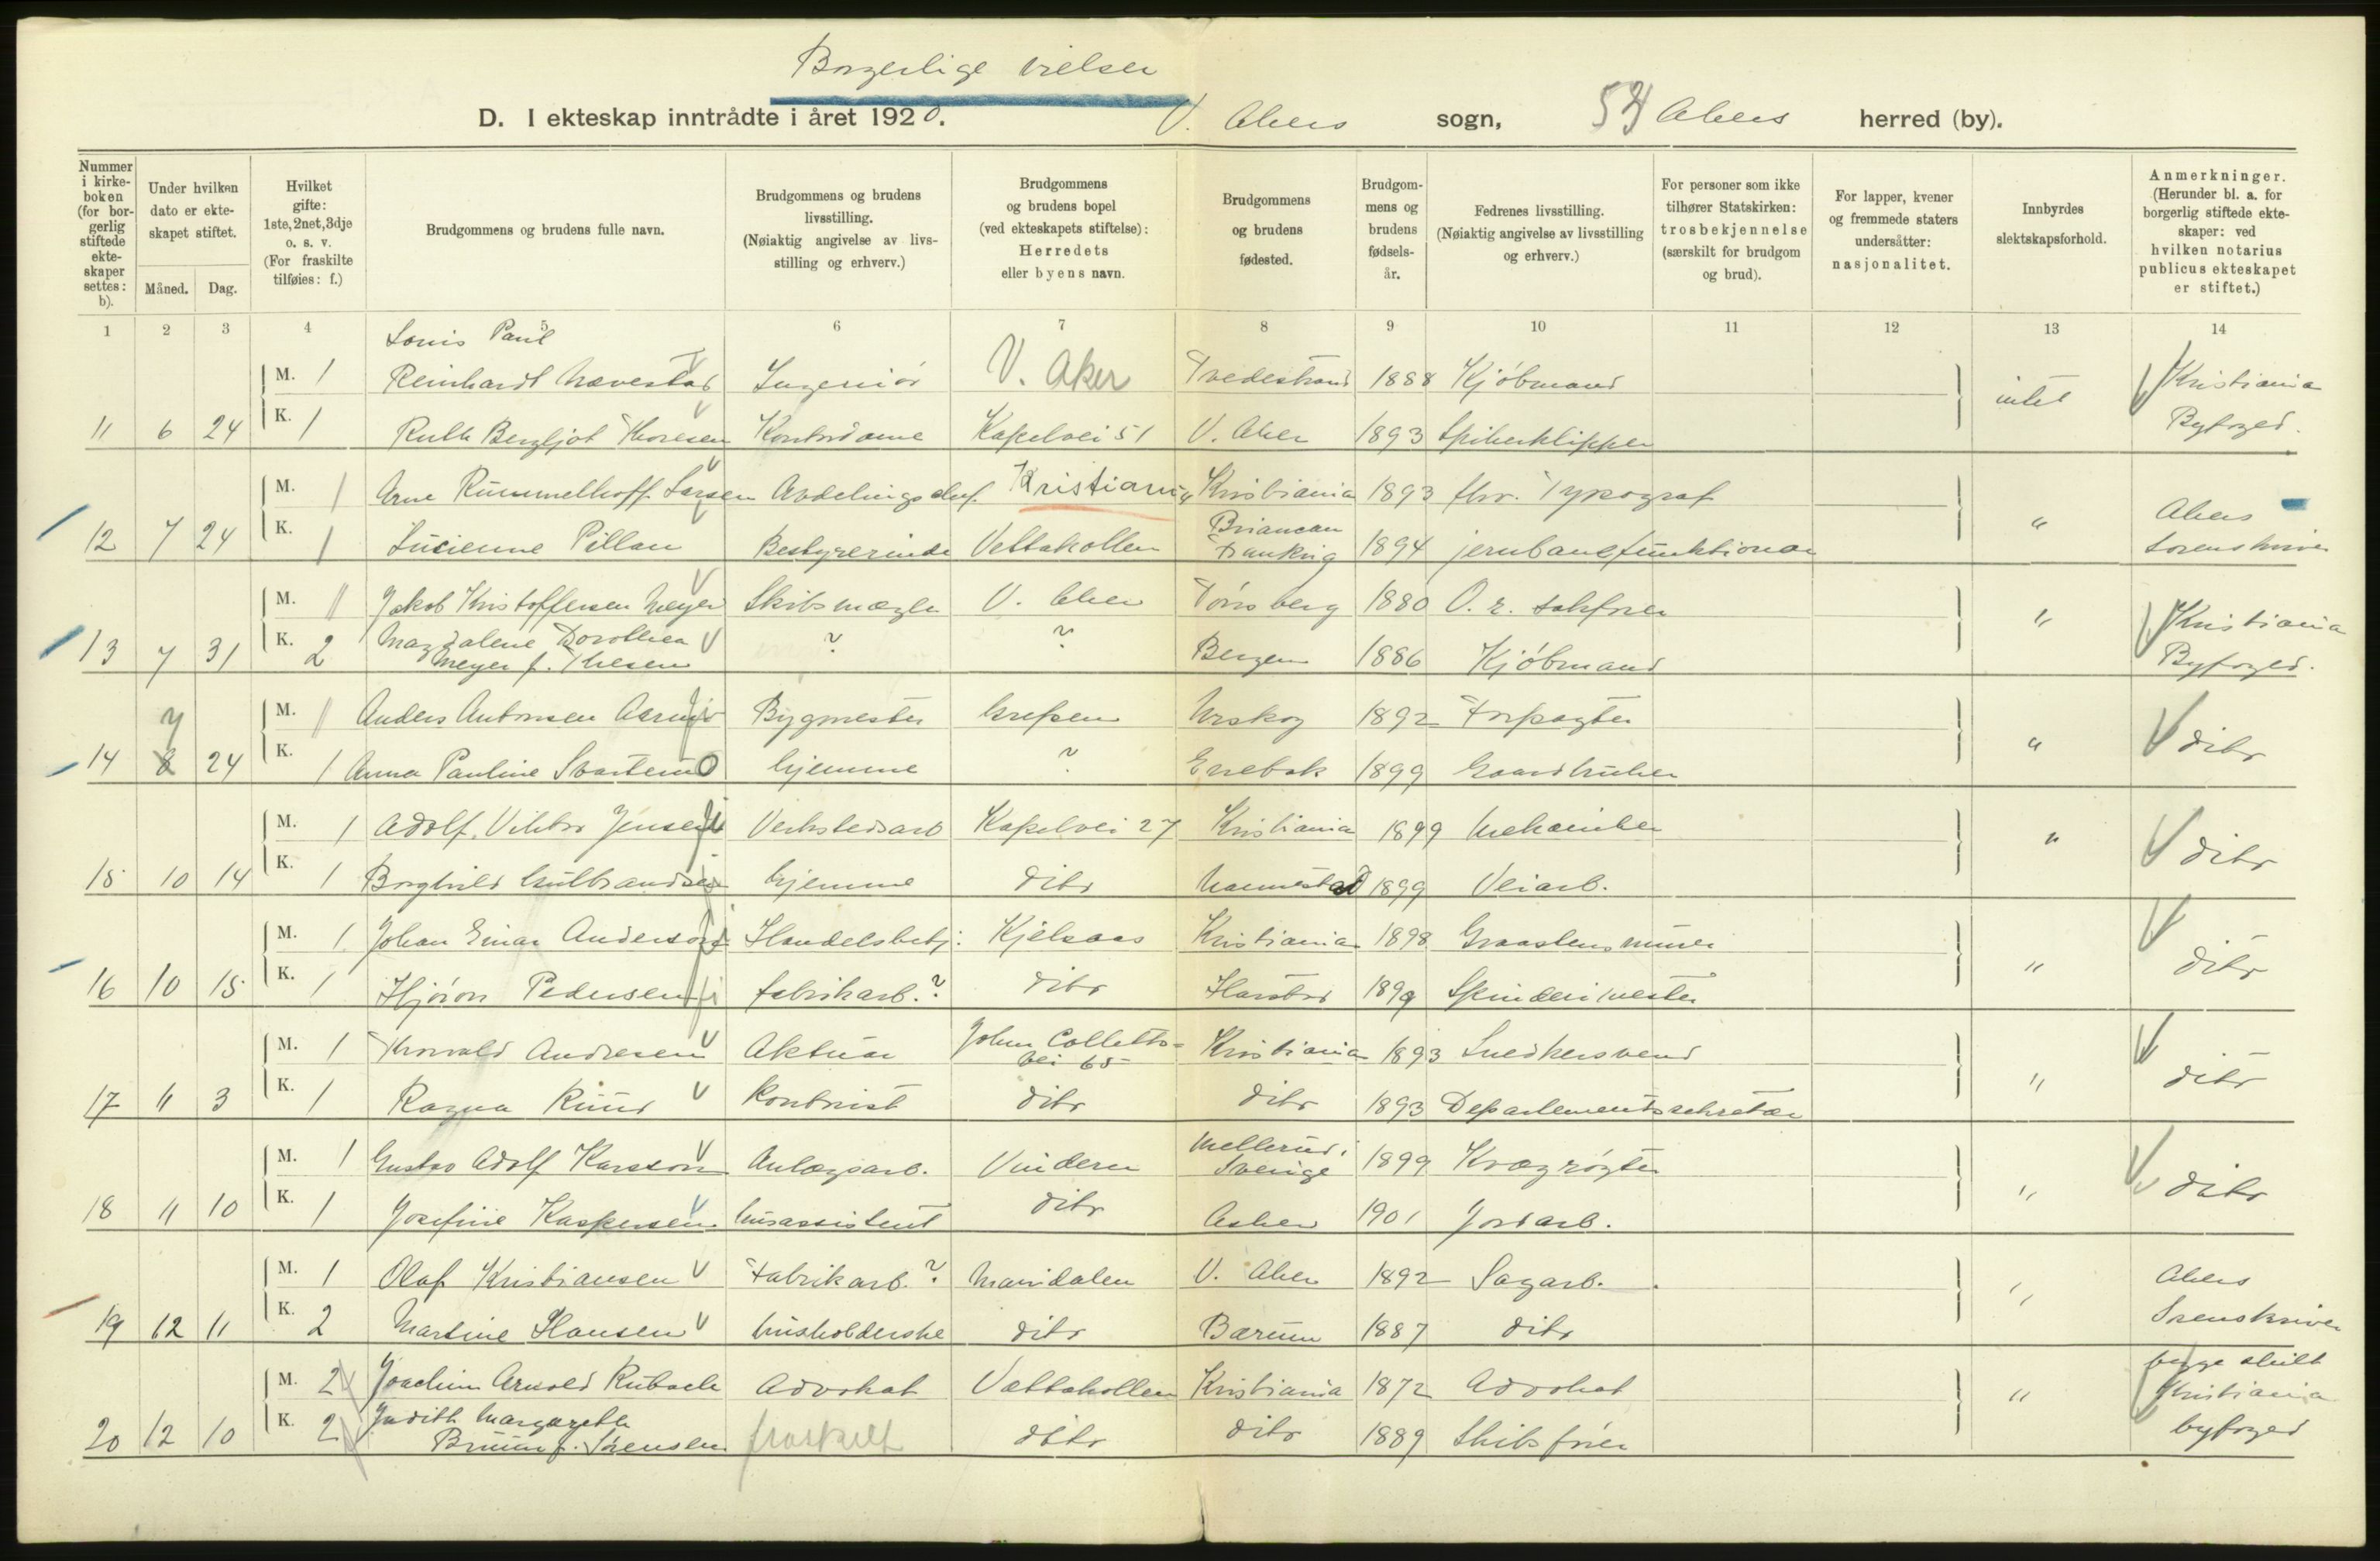 Borgerlige vielser
D. I ekteskap inntrådte i året 1920. V. Akers sogn, Akers herred (by).
Nummer i kirke-boken (for bor-gerlig stiftede ekte-skaper settes: b).
Under hvilken dato er ekte-skapet stiftet.
Måned. Dag.
Hvilket gifte: 1ste, 2net, 3dje o. s. v. (For fraskilte tilføies: f.)
Brudgommens og brudens fulle navn.
Brudgommens og brudens livsstilling. (Nøiaktig angivelse av livs-stilling og erhverv.)
Brudgommens og brudens bopel (ved ekteskapets stiftelse): Herredets eller byens navn.
Brudgommens og brudens fødested.
Brudgom-mens og brudens fødsels-år.
Fedrenes livsstilling. (Nøiaktig angivelse av livsstilling og erhverv.)
For personer som ikke tilhører Statskirken: trosbekjennelse (særskilt for brudgom og brud).
For lapper, kvener og fremmede staters undersåtter: nasjonalitet.
Innbyrdes slektskapsforhold.
Anmerkninger. (Herunder bl. a. for borgerlig stiftede ekte-skaper: ved hvilken notarius publicus ekteskapet er stiftet.)
1 2 3 4 5 6 7 8 9 10 11 12 13 14
Louis Paul
M. 1 Reinhardt Nævestad Ingeniør V. Aker Tvedestrand 1888 Kjøbmand intet Kristiania
11 6 24 K. 1 Ruth Bergljot Thoresen Kontordame Kapelvei 51 V. Aker 1893 Spikerklipper Byfoged.
M. 1 Arne Rummelhoff Larsen Avdelingschef Kristiania Kristiania 1893 fhv. Typograf " Akers
12 7 24 K. 1 Lucienne Pillan Bestyrerinde Vettakollen Briancan Frankrig 1894 jernbanefunktionær Sorenskriver
M. 1 Jakob Kristoffersen Meyer Skibsmægler V. Aker Tønsberg 1880 O. r. sakfører " Kristiania
13 7 31 K. 2 Magdalene Dorothea Meyer f. Thesen ? ? Bergen 1886 Kjøbmand Byfoged.
7
M. 1 Anders Antonsen Bygmester Grefsen Urskog 1892 Forpagter " ditto
14 8 24 K. 1 Anna Pauline hjemme ? Enebak 1899 Gaardbruker
M. 1 Adolf Viktor Jensen Verkstedsarb Kapelvei 27 Kristiania 1899 Mekaniker " ditto
15 10 14 K. 1 Borghild Gulbrandsen hjemme ditto 1899 Veiarb.
M. 1 Johan Einar Anderson Handelsbetj. Kjelsaas Kristiania 1898 Graastensmurer " ditto
16 10 15 K. 1 Hjørdis Pedersen fabrikarb. ? ditto Harstad 1899 Spinderimester
M. 1 Thorvald Andresen Aktuar John Colletts-vei 65 Kristiania 1893 Snedkersvend " ditto
17 11 3 K. 1 Ragna Ruud Kontorist ditto ditto 1893 Departementssekretær
M. 1 Gustav Adolf Karsson Anlægsarb. Vinderen Mellerud i Sverige 1899 Kvægrøgter " ditto
18 11 10 K. 1 Josefine Kaspersen husassistent ditto Asker 1901 Jordarb.
M. 1 Olaf Kristiansen Fabrikarb. ? Maridalen V. Aker 1892 Sagarb. " Akers
19 12 11 K. 2 Martine Hansen husholderske ditto Bærum 1887 ditto Sorenskriver
M. 2 Joachim Arnold Advokat Vettakollen Kristiania 1872 Advokat " begge skilt Kristiania
20 12 10 K. 2 Judith Margarethe Bruun f. Sørensen fraskilt ditto ditto 1889 Skibsfører byfoged